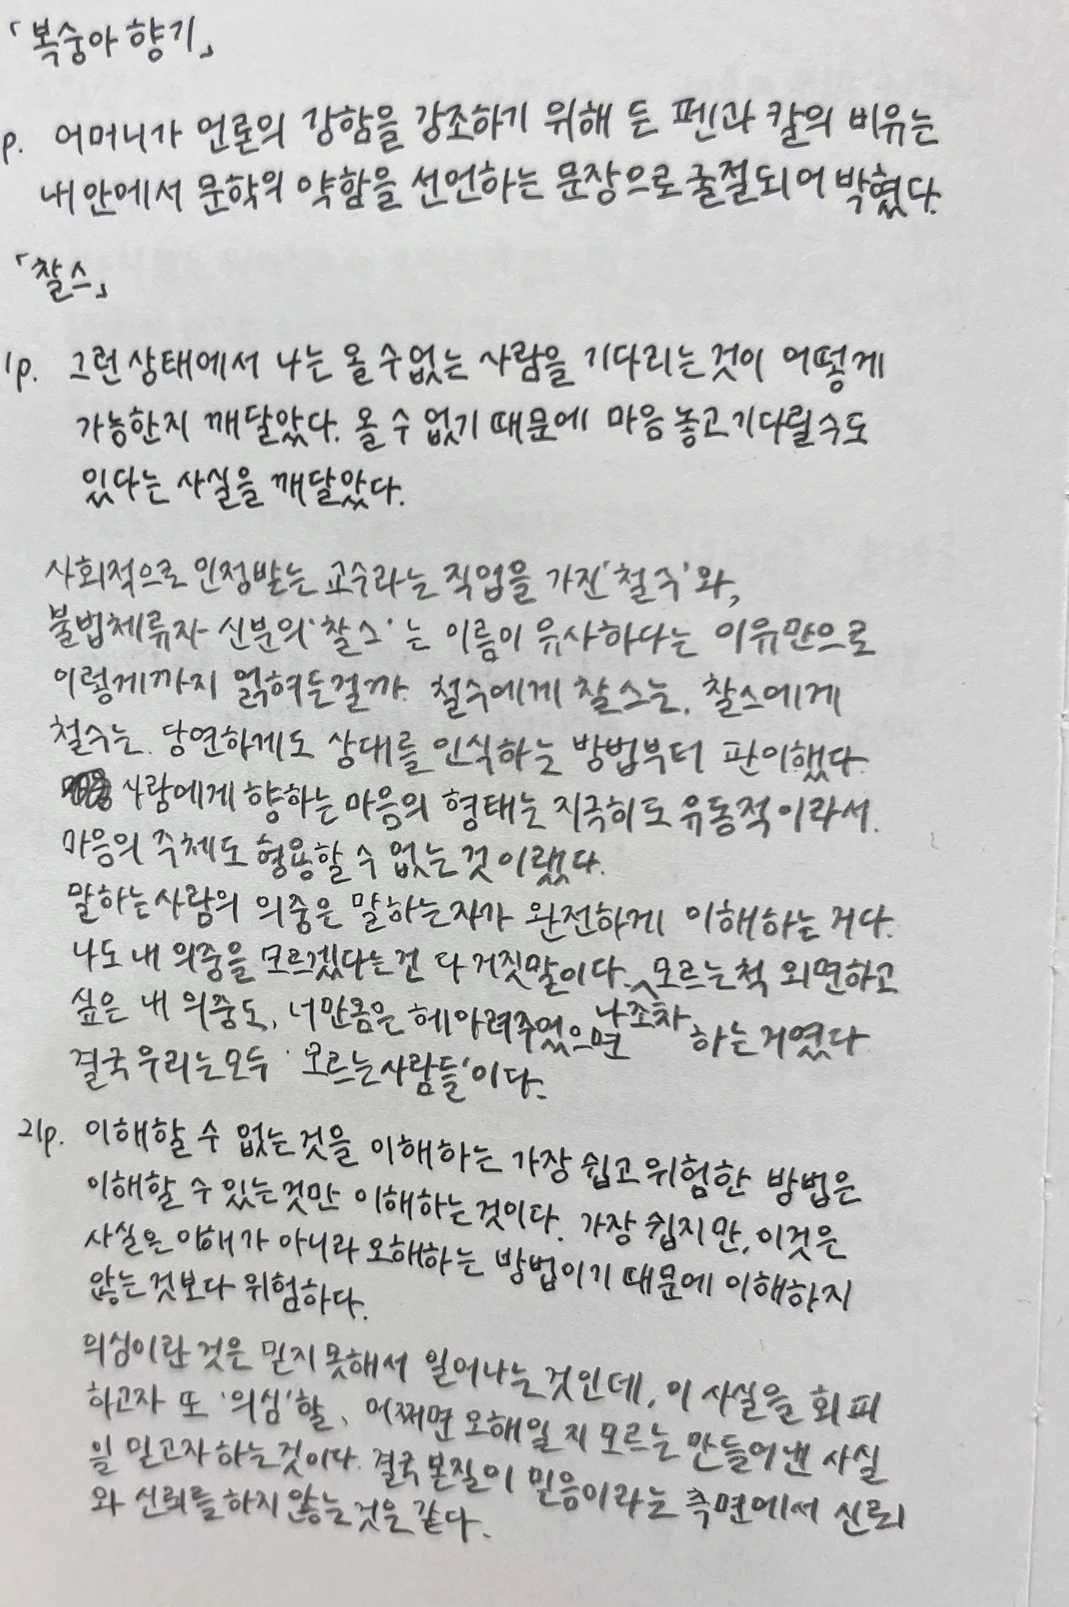 「복숭아 향기」
p. 어머니가 언론의 강함을 강조하기 위해 든 펜과 칼의 비유는
내 안에서 문학의 약함을 선언하는 문장으로 굴절되어 박혔다.
「찰스」
1p. 그런 상태에서 나는 올 수 없는 사람을 기다리는 것이 어떻게
가능한지 깨달았다. 올 수 없기 때문에 마음 놓고 기다릴 수도
있다는 사실을 깨달았다.
사회적으로 인정받는 교수라는 직업을 가진 '철수'와,
불법체류자 신분의 '찰스'는 이름이 유사하다는 이유만으로
이렇게까지 얽혀든걸까. 철수에게 찰스는, 찰스에게
철수는. 당연하게도 상대를 인식하는 방법부터 판이했다.
사람에게 향하는 마음의 형태는 지극히도 유동적이라서.
마음의 주체도 형용할 수 없는 것이랬다.
말하는 사람의 의중은 말하는 자가 완전하게 이해하는 거다.
나도 내 의중을 모르겠다는건 다 거짓말이다. 모르는 척 외면하고
싶은 내 의중도, 너만큼은 헤아려주었으면 나조차 하는 거였다
결국 우리는 모두 '모르는 사람들'이다.
21p. 이해할 수 없는 것을 이해하는 가장 쉽고 위험한 방법은
이해할 수 있는 것만 이해하는 것이다. 가장 쉽지만, 이것은
사실은 이해가 아니라 오해하는 방법이기 때문에 이해하지
않는 것보다 위험하다.
의심이란 것은 믿지 못해서 일어나는 것인데, 이 사실을 회피
하고자 또 '의심'할, 어쩌면 오해일 지 모르는 만들어낸 사실
을 믿고자 하는 것이다. 결국 본질이 믿음이라는 측면에서 신뢰
와 신뢰를 하지 않는 것은 같다.